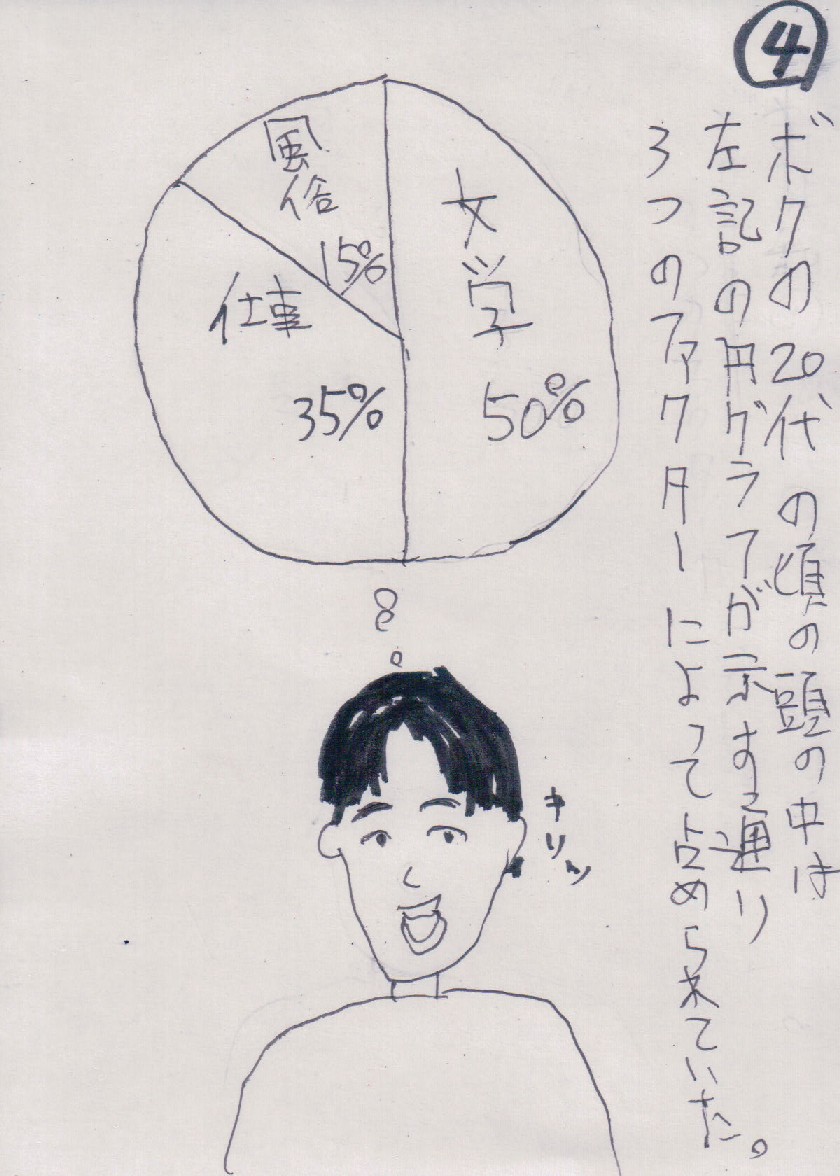 ④
ボクの20代の頃の頭の中は
左記の円グラフが示す通り
3つのファクターによって占められていた。
文学
50%
風俗
15%
仕事
35%
キリッ